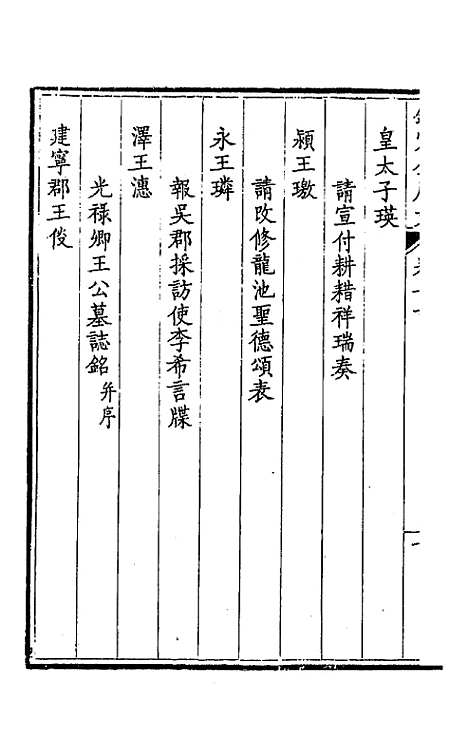 皇太子瑛
請宣付耕耤祥瑞奏
潁王璬
請改修龍池聖德頌表
永王璘
報吳郡採訪使李希言牒
澤王漶
光祿卿王公墓誌銘 并序
建寧郡王倓